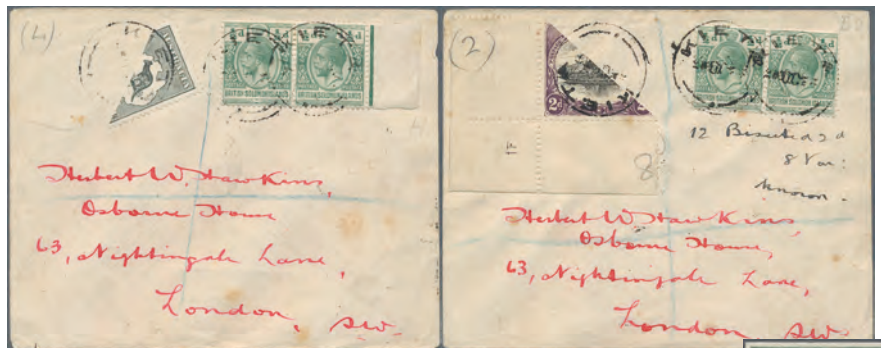 (4)
KIETA
BRITISH SOLOMON ISLANDS
Herbert W. Hawkins,
Osborne House
63, Nightingale Lane,
London, SW.
(2)
KIETA
2d
8
12 Bisected 2d
8 Var:
known.
Herbert W Hawkins,
Osborne House,
63, Nightingale Lane,
London SW.